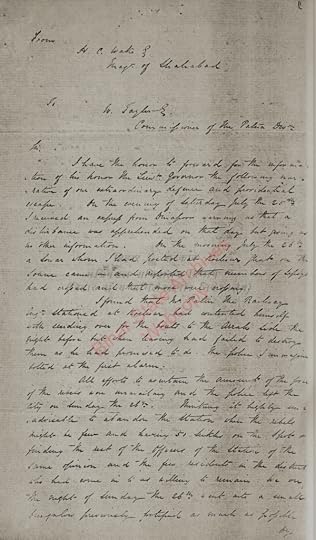 From
H. C. Wake Esq
Magt of Shahabad
To
W. Tayler Esq
Commissioner of the Patna Divn
Sir,
I have the honor to forward for the informa-
tion of his honor the Lieut Governor the following nar-
ration of our extraordinary defence and providential
escape. On the evening of Saturday July the 25th
I received an express from Dinapore warning us that a
disturbance was apprehended on that day but giving us
no other information. On the morning July the 26th
a Sowar whom I had posted at Koelwur Ghat on the
Soane came in and reported that numbers of Sepoys
had crossed and that more were crossing
I found that Mr Palin the Railway
Engr stationed at Koelwur had contented himself
with sending over for the boats to the Arrah side the
night before but then leaving had failed to destroy
them as he had promised to do. The police I
bolted at the first alarm.
All efforts to ascertain the amount of the force
of the were unavailing and the police left the
city on Sunday the 26th. Thinking it highly in-
advisable to abandon the station when the rebels
might be few and having 50 Sikhs on the spot &
finding the rest of the officers of the station of the
same opinion and the few residents in the district
who had come in to us willing to remain we on
the night of Sunday the 26th went into a small
Bungalow previously fortified as much as possible
by